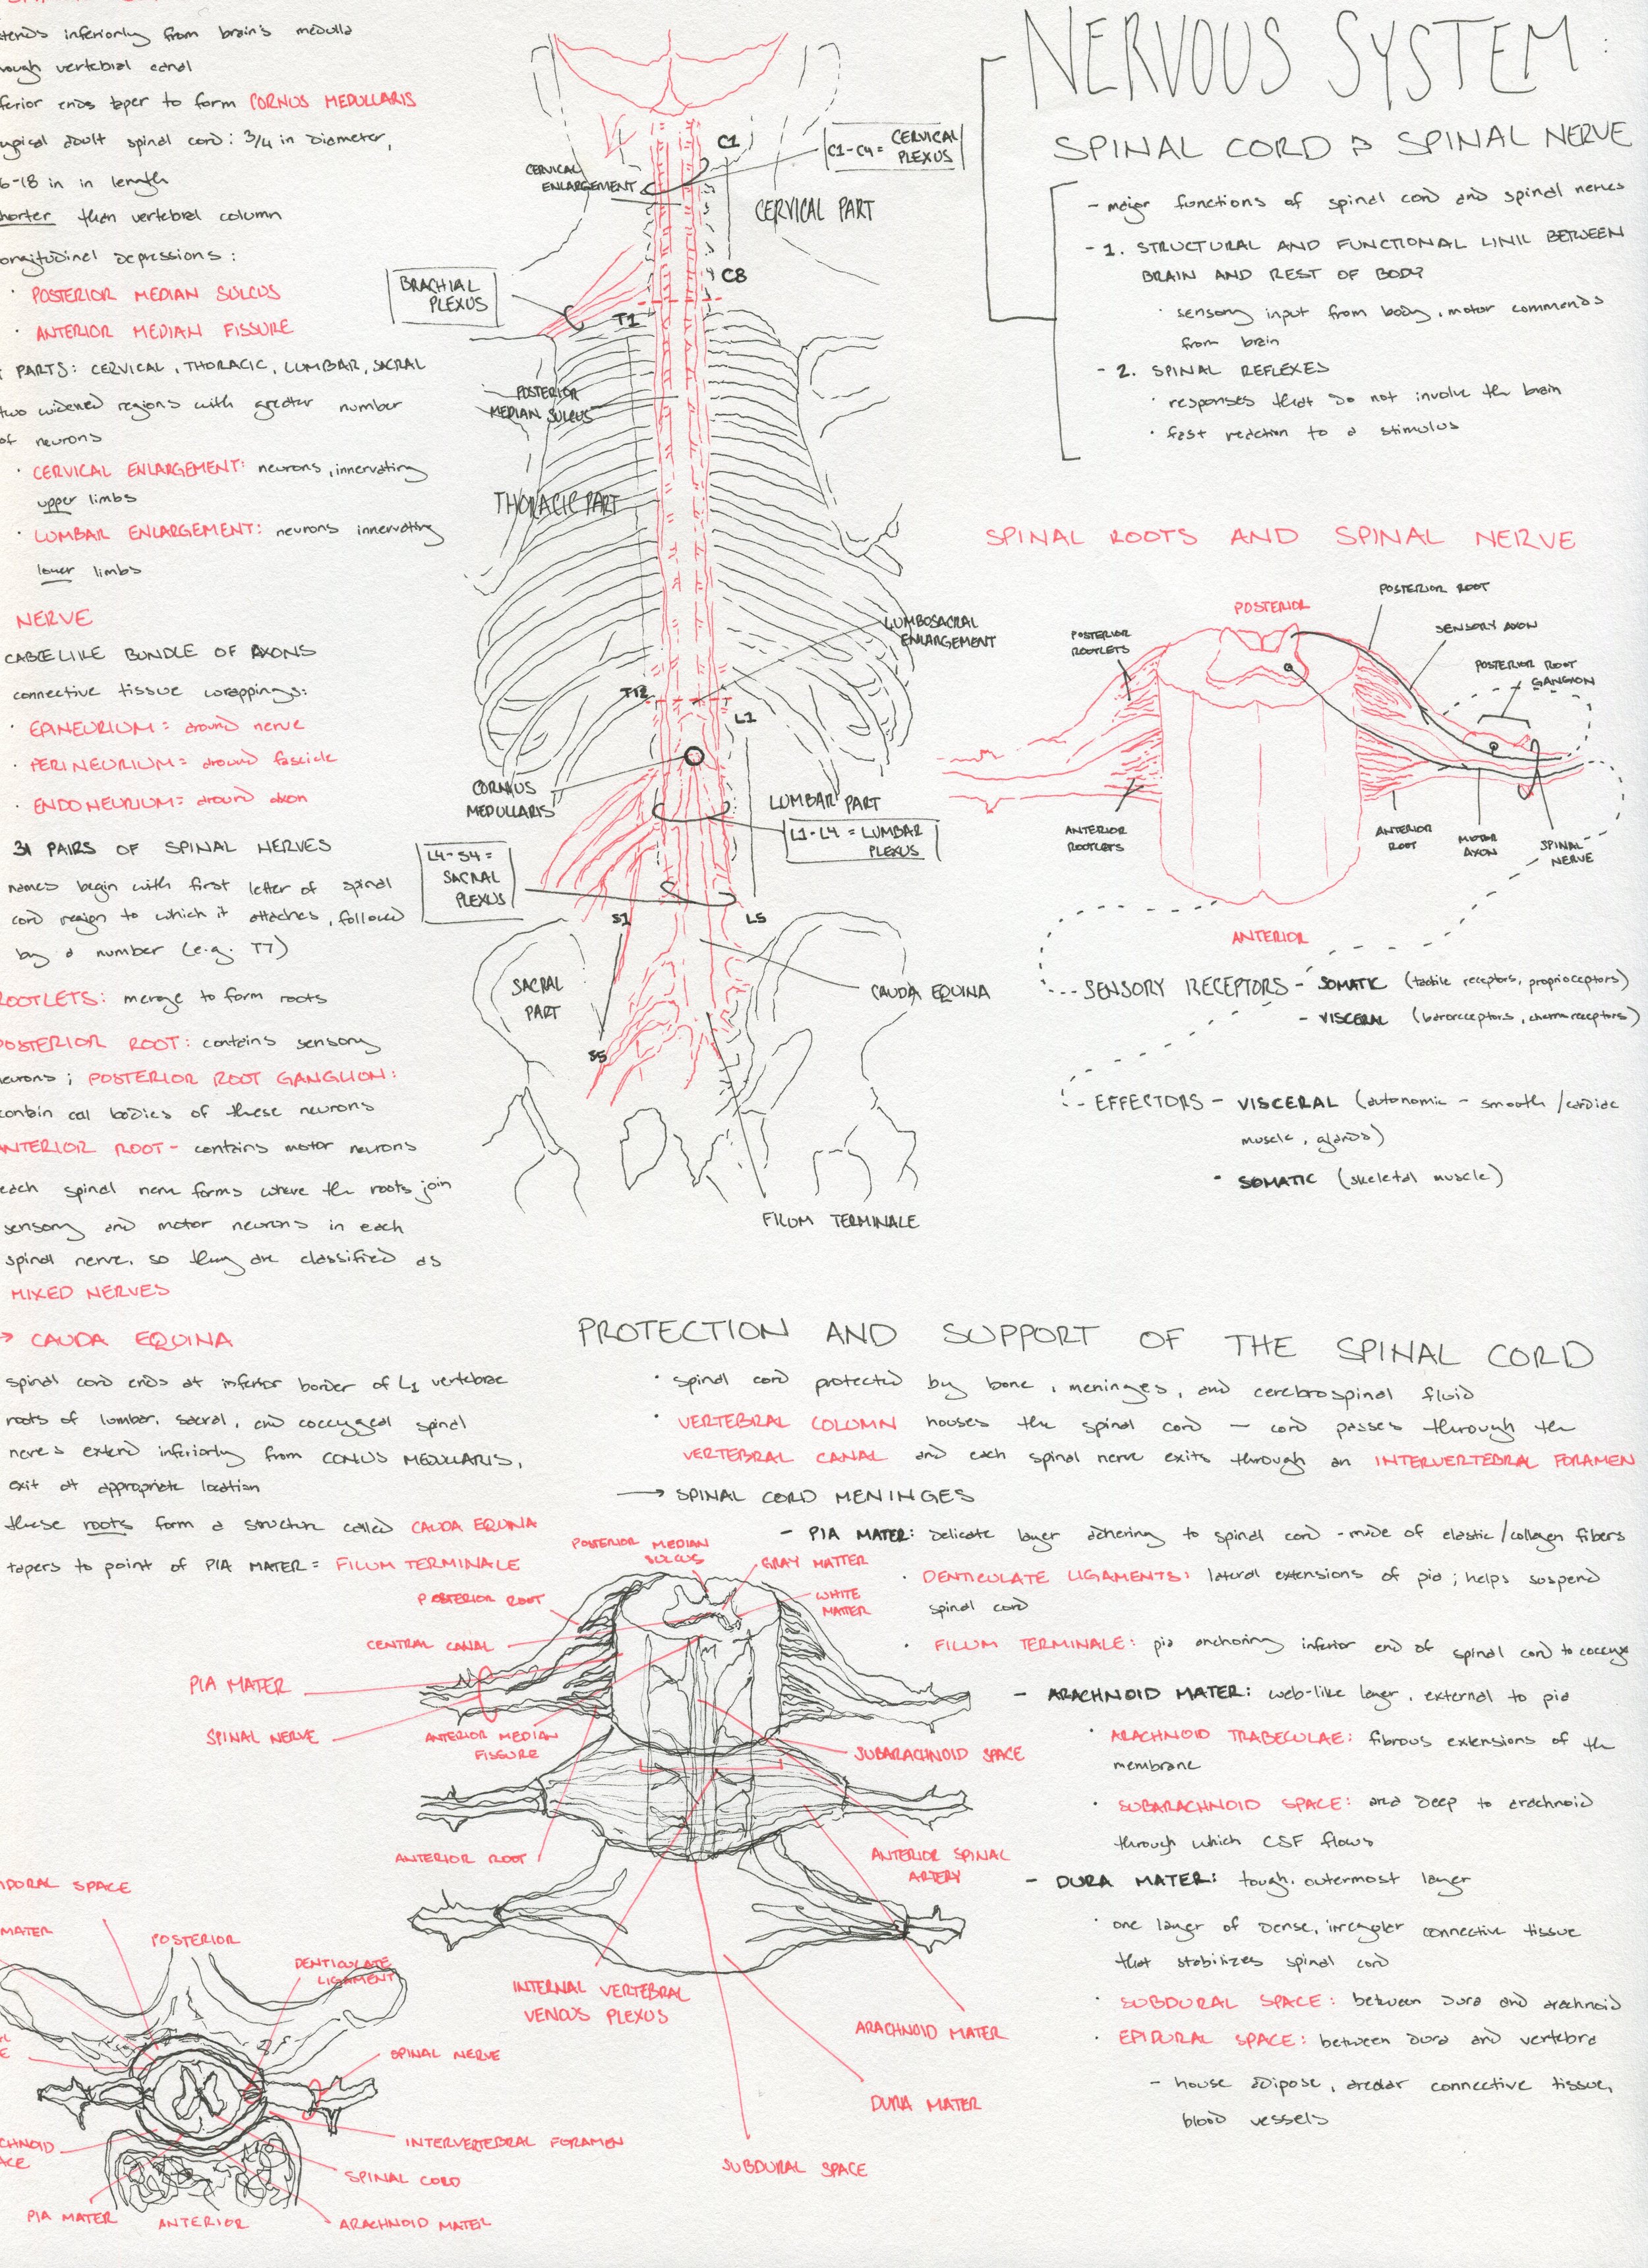 NERVOUS SYSTEM:
SPINAL CORD & SPINAL NERVE
- major functions of spinal cord and spinal nerves
- 1. STRUCTURAL AND FUNCTIONAL LINK BETWEEN
BRAIN AND REST OF BODY
· sensory input from body, motor commands
from brain
- 2. SPINAL REFLEXES
· responses that do not involve the brain
· fast reaction to a stimulus
inferiorly from brain's medulla
vertebral canal
ends taper to form CORNUS MEDULLARIS
adult spinal cord: 3/4 in diameter,
-18 in in length
than vertebral column
depressions:
· POSTERIOR MEDIAN SULCUS
· ANTERIOR MEDIAN FISSURE
PARTS: CERVICAL, THORACIC, LUMBAR, SACRAL
two widened regions with greater number
of neurons
· CERVICAL ENLARGEMENT: neurons, innervating
upper limbs
· LUMBAR ENLARGEMENT: neurons innervating
lower limbs
NERVE
CABLELIKE BUNDLE OF AXONS
connective tissue wrappings:
· EPINEURIUM = around nerve
· PERINEURIUM = around fascicle
· ENDONEURIUM = around axon
31 PAIRS OF SPINAL NERVES
names begin with first letter of spinal
cord region to which it attaches, followed
by a number (e.g. T7)
ROOTLETS: merge to form roots
POSTERIOR ROOT: contains sensory
neurons; POSTERIOR ROOT GANGLION:
contain cal bodies of these neurons
ANTERIOR ROOT - contains motor neurons
each spinal nerve forms where the roots join
sensory and motor neurons in each
spinal nerve, so they are classified as
MIXED NERVES
→ CAUDA EQUINA
spinal cord ends at inferior border of L1 vertebrae
roots of lumbar, sacral, and coccygeal spinal
nerves extend inferiorly from CONUS MEDULLARIS,
exit at appropriate location
these roots form a structure called CAUDA EQUINA
tapers to point of PIA MATER = FILUM TERMINALE
C1
C1-C4 = CERVICAL
PLEXUS
CERVICAL
ENLARGEMENT
CERVICAL PART
C8
BRACHIAL
PLEXUS
T1
POSTERIOR
MEDIAN SULCUS
THORACIC PART
LUMBOSACRAL
ENLARGEMENT
T12
L1
CORNUS
MEDULLARIS
LUMBAR PART
L1-L4 = LUMBAR
PLEXUS
L4-S4 =
SACRAL
PLEXUS
S1
L5
SACRAL
PART
CAUDA EQUINA
S5
FILUM TERMINALE
SPINAL ROOTS AND SPINAL NERVE
POSTERIOR
POSTERIOR ROOT
SENSORY AXON
POSTERIOR
ROOTLETS
POSTERIOR ROOT
GANGION
ANTERIOR
ROOTLETS
ANTERIOR
ROOT
MOTOR
AXON
SPINAL
NERVE
ANTERIOR
SENSORY RECEPTORS - SOMATIC (tactile receptors, proprioceptors)
- VISCERAL (baroreceptors, chemoreceptors)
EFFECTORS - VISCERAL (autonomic - smooth/cardiac
muscle, glands)
· SOMATIC (skeletal muscle)
PROTECTION AND SUPPORT OF THE SPINAL CORD
· spinal cord protected by bone, meninges, and cerebrospinal fluid
· VERTEBRAL COLUMN houses the spinal cord - cord passes through the
VERTEBRAL CANAL and each spinal nerve exits through an INTERVERTEBRAL FORAMEN
→ SPINAL CORD MENINGES
- PIA MATER: delicate layer adhering to spinal cord - made of elastic/collagen fibers
· DENTICULATE LIGAMENTS: lateral extensions of pia; helps suspend
spinal cord
· FILUM TERMINALE: pia anchoring inferior end of spinal cord to coccyx
- ARACHNOID MATER: web-like layer, external to pia
· ARACHNOID TRABECULAE: fibrous extensions of the
membrane
· SUBARACHNOID SPACE: area deep to arachnoid
through which CSF flows
- DURA MATER: tough, outermost layer
· one layer of dense, irregular connective tissue
that stabilizes spinal cord
· SUBDURAL SPACE: between dura and arachnoid
· EPIDURAL SPACE: between dura and vertebra
- house adipose, areolar connective tissue,
blood vessels
POSTERIOR MEDIAN
SULCUS
GRAY MATTER
WHITE
MATTER
POSTERIOR ROOT
CENTRAL CANAL
PIA MATER
SPINAL NERVE
ANTERIOR MEDIAN
FISSURE
SUBARACHNOID SPACE
ANTERIOR ROOT
ANTERIOR SPINAL
ARTERY
INTERNAL VERTEBRAL
VENOUS PLEXUS
ARACHNOID MATER
DURA MATER
SUBDURAL SPACE
SPACE
MATER
POSTERIOR
DENTICULATE
LIGAMENT
SPINAL NERVE
INTERVERTEBRAL FORAMEN
SPINAL CORD
PIA MATER
ANTERIOR
ARACHNOID MATER